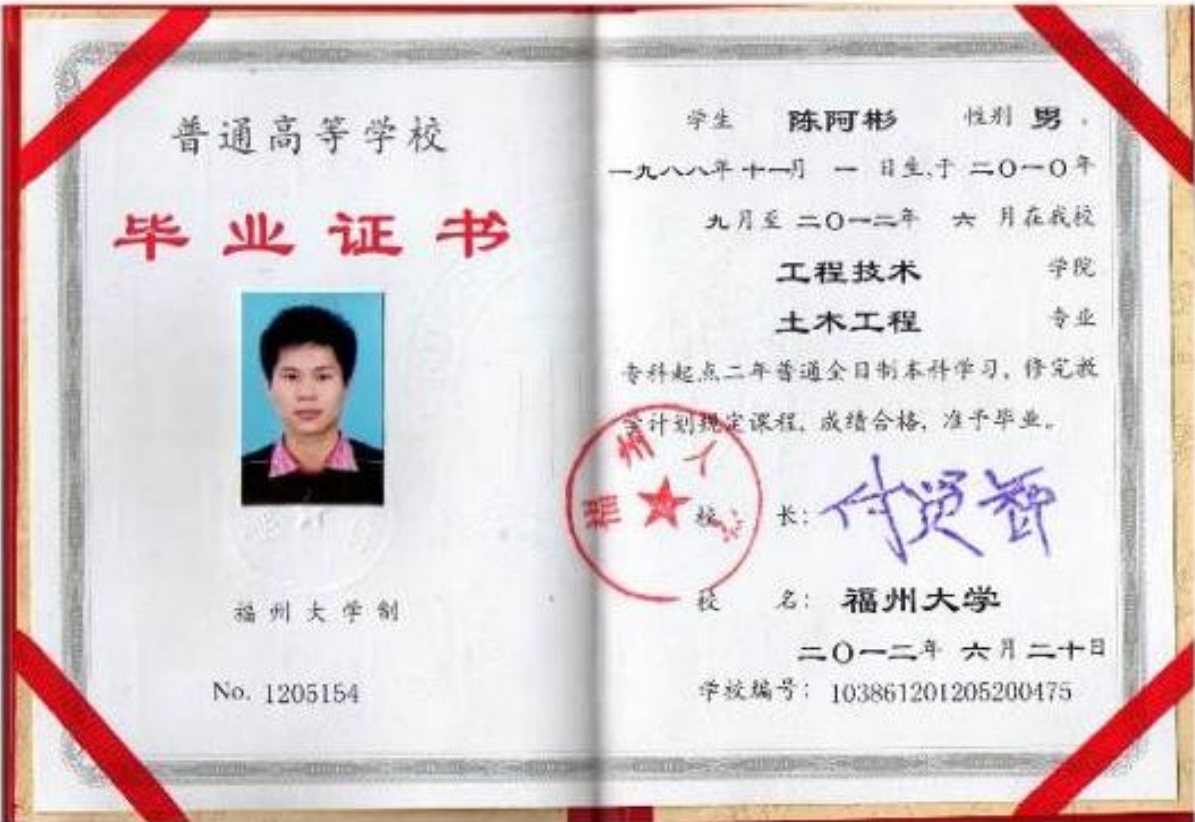 普通高等学校
毕业证书
福州大学制
No. 1205154
学生 陈阿彬 性别 男 ,
一九八八年十一月 一 日生,于 二〇一〇年
九月至 二〇一二年 六 月在我校
工程技术 学院
土木工程 专业
专科起点二年普通全日制本科学习, 修完教
学计划规定课程, 成绩合格, 准予毕业。
校 长: 付贤智
校 名: 福州大学
二〇一二年 六月二十日
学校编号: 103861201205200475
福州大